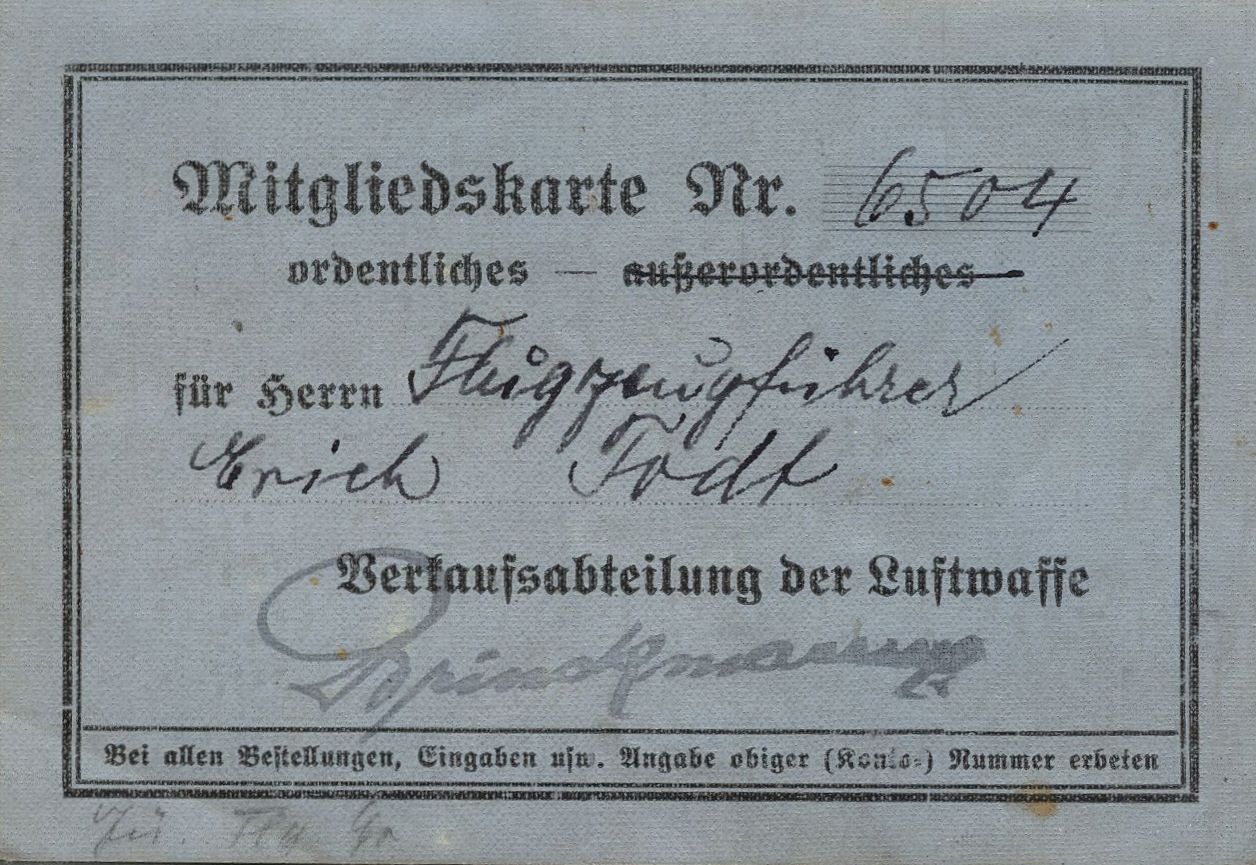 Mitgliedskarte Nr. 6504
ordentliches — außerordentliches
für Herrn Flugzeugführer
Erich Todt
Verkaufsabteilung der Luftwaffe
Bei allen Bestellungen, Eingaben usw. Angabe obiger (Konto-) Nummer erbeten